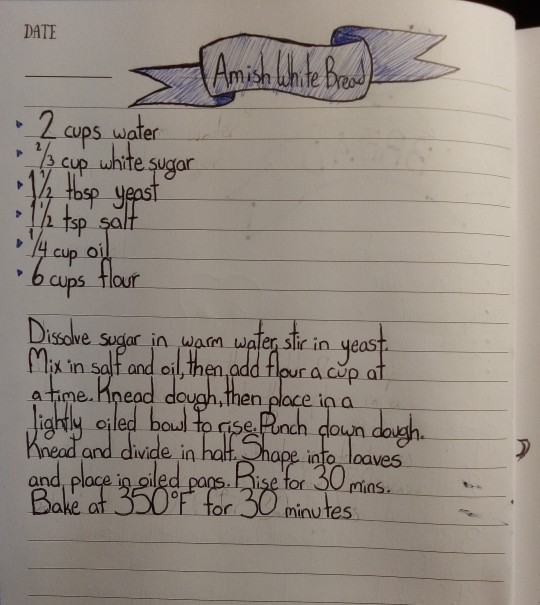 DATE
Amish White Bread
2 cups water
2/3 cup white sugar
1 1/2 tbsp yeast
1 1/2 tsp salt
1/4 cup oil
6 cups flour
Dissolve sugar in warm water, stir in yeast.
Mix in salt and oil, then add flour a cup at
a time. Knead dough, then place in a
lightly oiled bowl to rise. Punch down dough.
Knead and divide in half. Shape into loaves
and place in oiled pans. Rise for 30 mins.
Bake at 350°F for 30 minutes